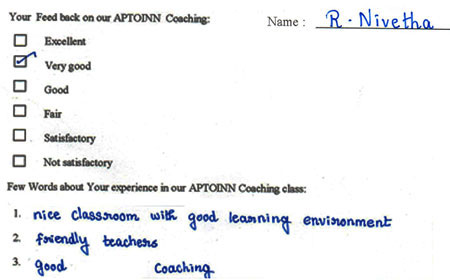 Your Feed back on our APTOINN Coaching:
Name : R. Nivetha
Excellent
Very good
Good
Fair
Satisfactory
Not satisfactory
Few Words about Your experience in our APTOINN Coaching class:
1. nice classroom with good learning environment
2. friendly teachers
3. good Coaching